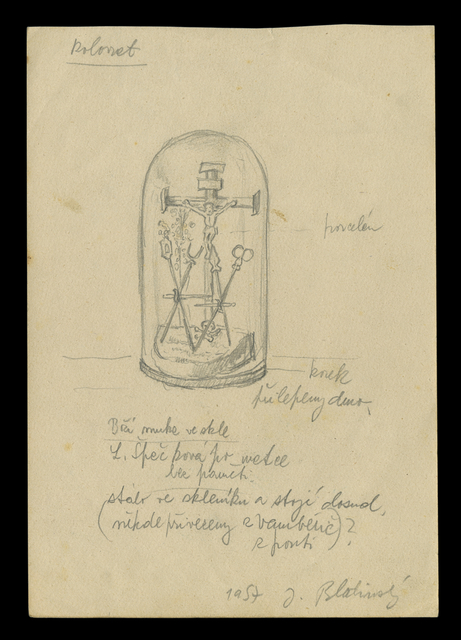 porcelán
korek
přilepený dno,
Boží muka ve skle
L. Špečková po matce
bez paměti.
stálo ve skleníku a stojí dosud,
(někde přivezený z Vambeřic)?
z pouti
1957 J.